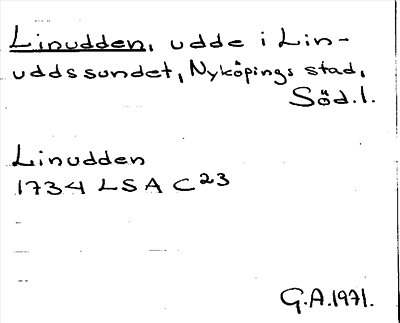 Linudden, udde i Lin-
uddssundet, Nyköpings stad,
Söd.l.
Linudden
1734 LSA C23
G.A.1971.